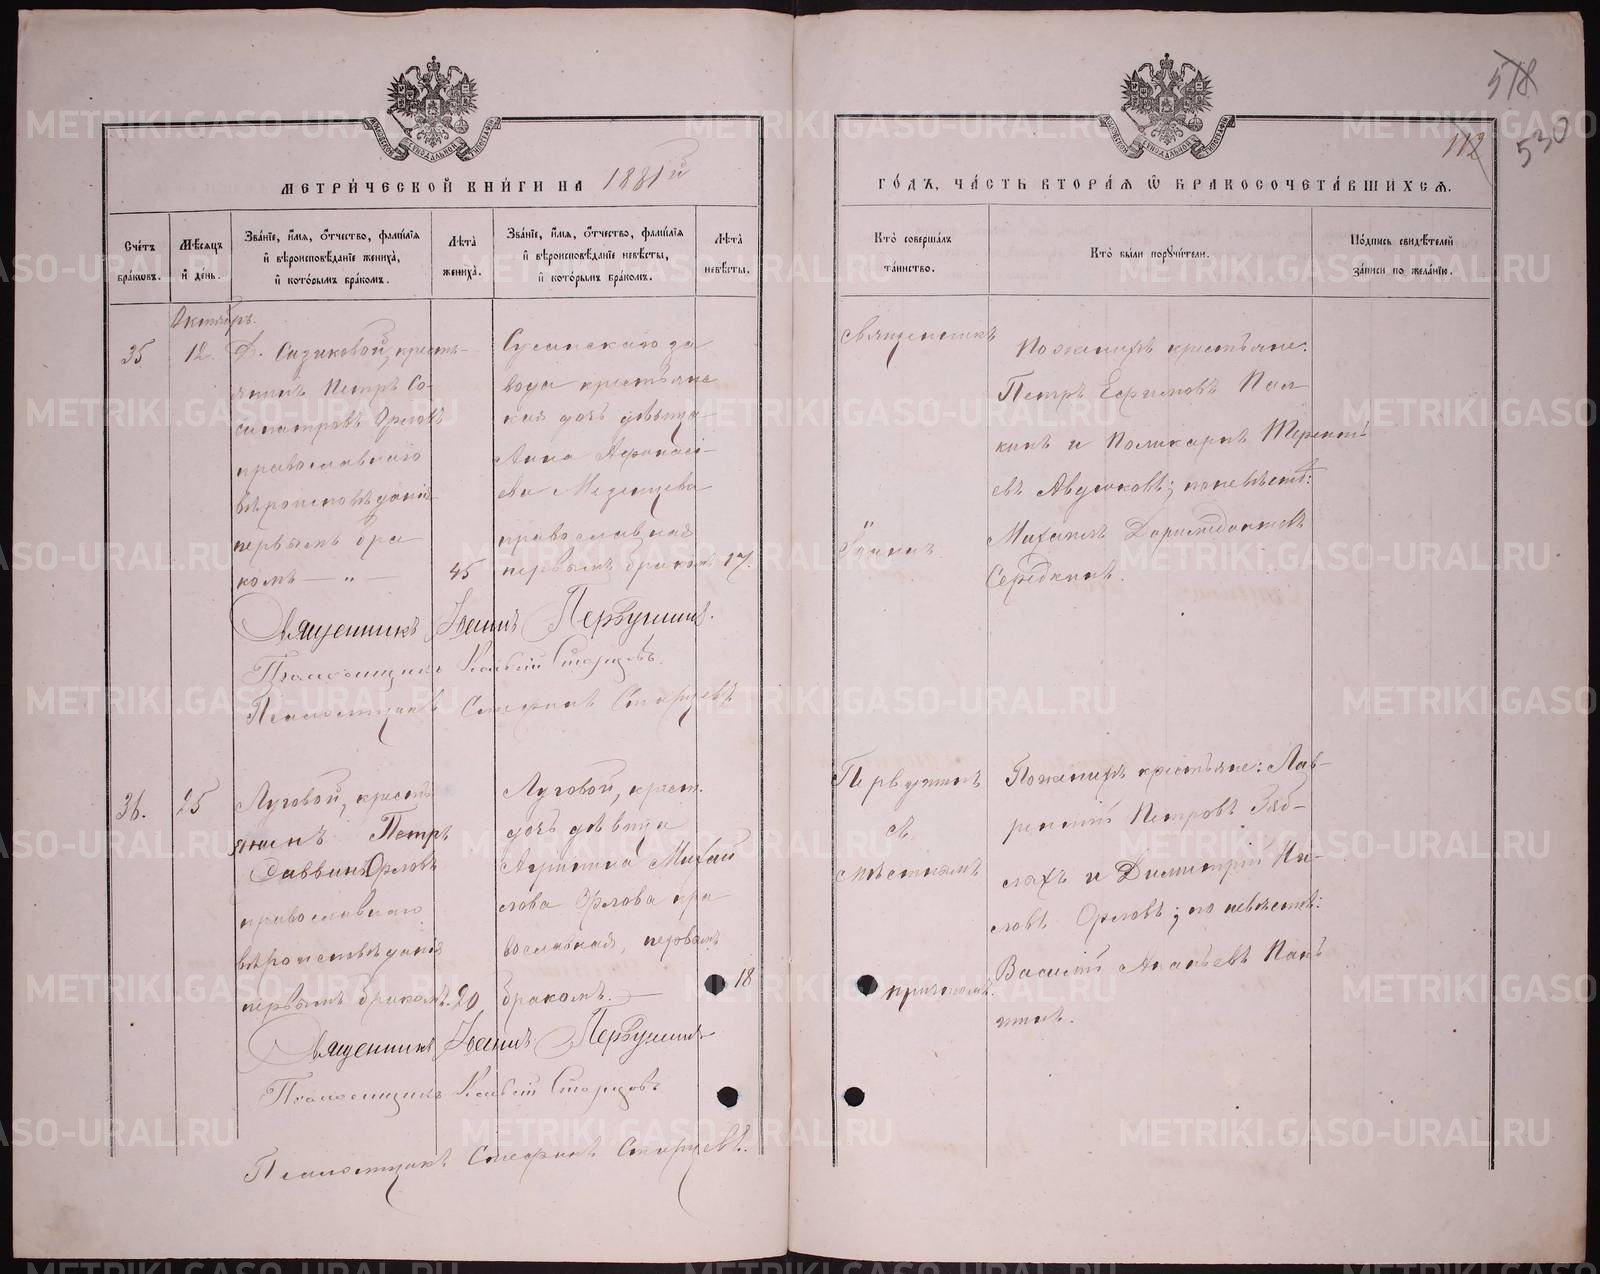 578
112
530
МЕТРИЧЕСКОЙ КНИГИ НА 1881й
ГОДЪ, ЧАСТЬ ВТОРАЯ Ѿ БРАКОСОЧЕТАВШИХСЯ.
Счетъ браковъ.
Мѣсяцъ и день.
Званіе, имя, отчество, фамилія и вѣроисповѣданіе жениха, и которымъ бракомъ.
Лѣта жениха.
Званіе, имя, отчество, фамилія и вѣроисповѣданіе невѣсты, и которымъ бракомъ.
Лѣта невѣсты.
Кто совершалъ таинство.
Кто были поручители.
Подпись свидѣтелей записи по желанію.
Октябрь.
35
12.
Д. Сизиковой, кресть-
янинъ Петръ Со-
сипатровъ Орловъ
православнаго
вѣроисповѣданія
первымъ бра
комъ — „ —
45
Сусанскаго за
вода крестьянс
кая дочь дѣвица
Анна Афанасі-
ева Меденцева
православная
первымъ бракомъ
17.
Священникъ Іоаннъ Первушинъ.
Псаломщикъ Старцовъ.
Псаломщикъ Стефанъ Старцевъ
священникъ
По женихѣ крестьяне:
Петръ Ефимовъ Пал
кинъ и Поликарпъ Терентъ
евъ Авдюковъ; по невѣстѣ:
Михаилъ
Середкинъ.
36.
25
Луговой, кресть
янинъ Петръ
Саввинъ Орловъ
православнаго
вѣроисповѣданія
первымъ бракомъ.
20
Луговой, крест.
дочь дѣвица
Агрипина Михай
лова Орлова пра
вославная, первымъ
бракомъ. —
18
Первушинъ
съ
мѣстнымъ
причтомъ.
По женихѣ крестьяне: Лав-
рентій Петровъ Зяб-
лахъ и Димитрій Ни-
ловъ Орловъ; по невѣстѣ:
Василій Ананьевъ Пань
шинъ.
Священникъ Іоаннъ Первушинъ
Псаломщикъ Старцовъ
Псаломщикъ Стефанъ Старцевъ.
METRIKI.GASO-URAL.RU